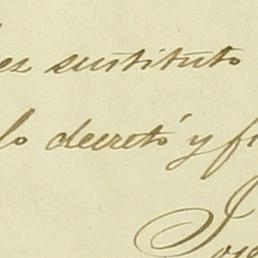 ez sustituto
lo decretó y fi
Jose